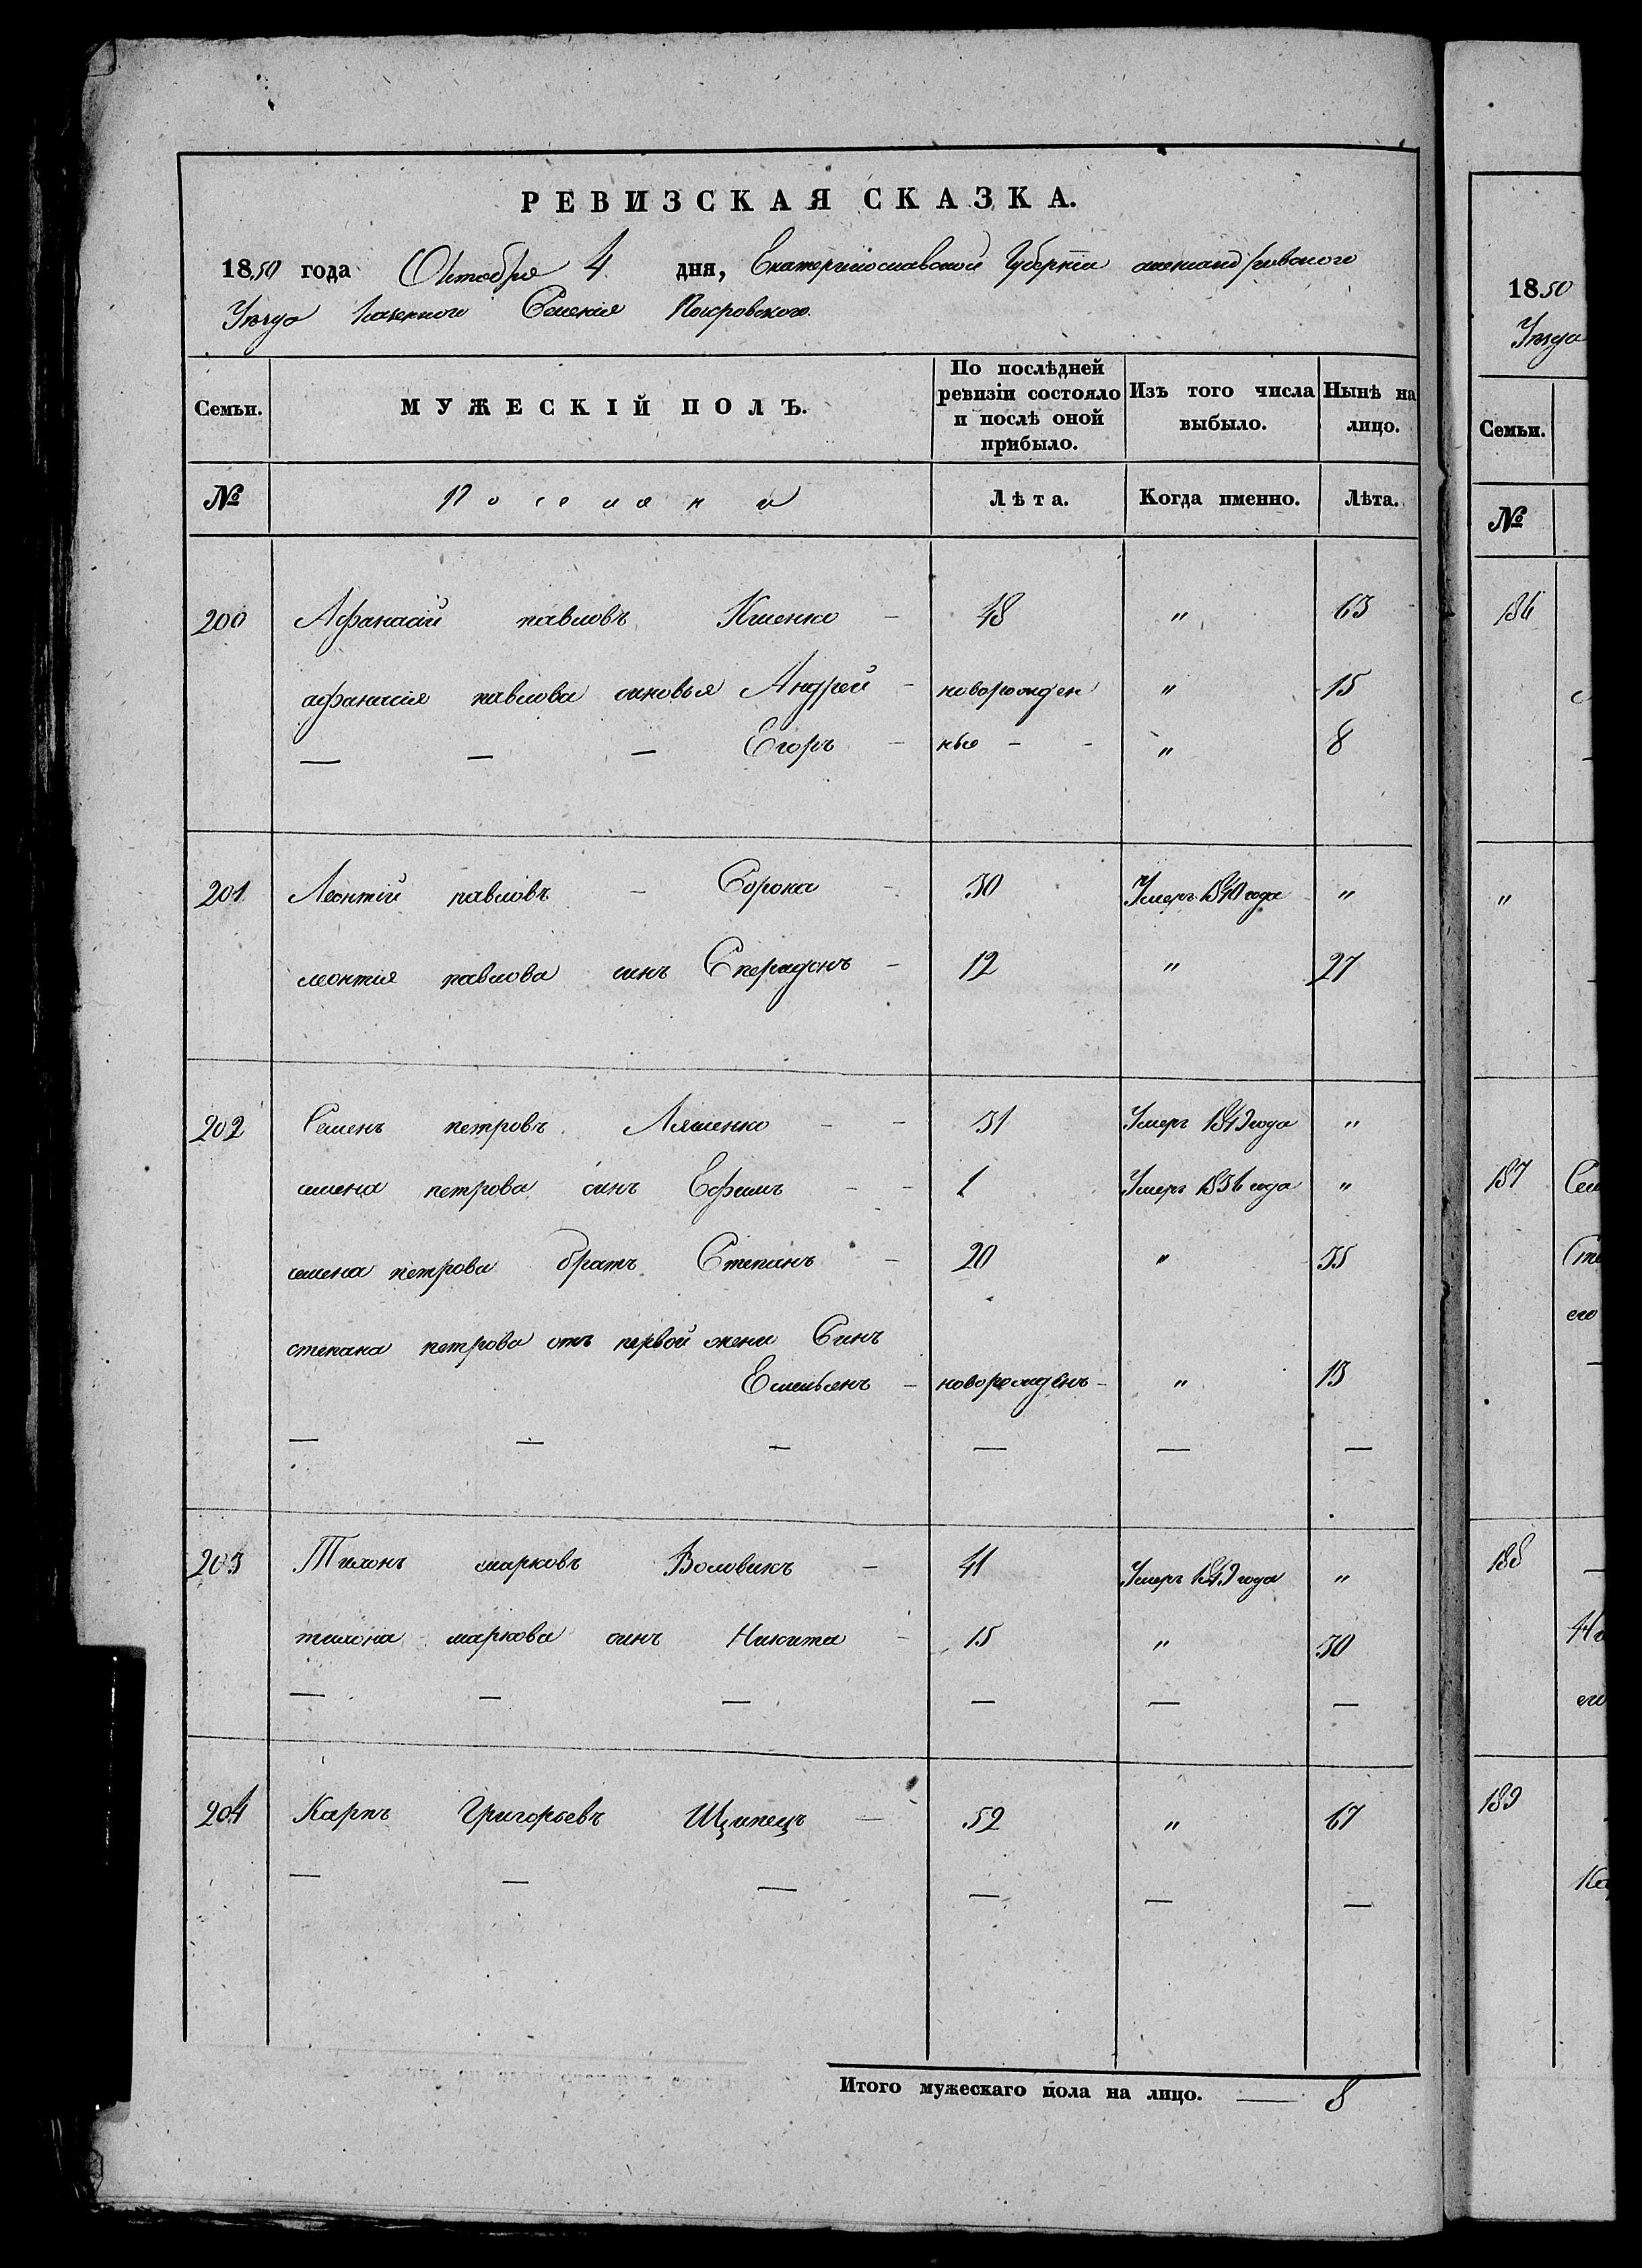 РЕВИЗСКАЯ СКАЗКА.
1850 года Октября 4 дня, Екатеринославской Губерніи александровского
Уезда Казенного Селенія Покровского.
Семьи. МУЖЕСКІЙ ПОЛЪ. По послѣдней ревизіи состояло и послѣ оной прибыло. Изъ того числа выбыло. Нынѣ на лицо.
№ Поселяни Лѣта. Когда именно. Лѣта.
200 Афанасій павловъ - 48 " 63
афанасія павлова синовья Андрей - новорожден " 15
— — — Егоръ - ные - - " 8
201 Леонтій павловъ - Сорока - 30 Умеръ 1840 года "
леонтія павлова синъ Сперидонъ - 12 " 27
202 Семенъ петровъ Ляшенко - - 31 Умеръ 1849 года "
семена петрова синъ Ефимъ - - 1 Умеръ 1836 года "
семена петрова братъ Степанъ - 20 " 35
степана петрова отъ первой жени Синъ
Емельянъ - новорожденъ - " 13
— — — — — —
203 Тихонъ марковъ Воловикъ - 41 Умеръ 1849 года "
тихона маркова синъ Никита - 15 " 30
— — — — — —
204 Карпъ Григорьевъ Щипецъ — 52 " 67
— — — — — —
Итого мужескаго пола на лицо. — 8
1850
Уезда
Семьи.
№
186
"
187 Сем
Сте
его
188
Ни
его
189
Ка